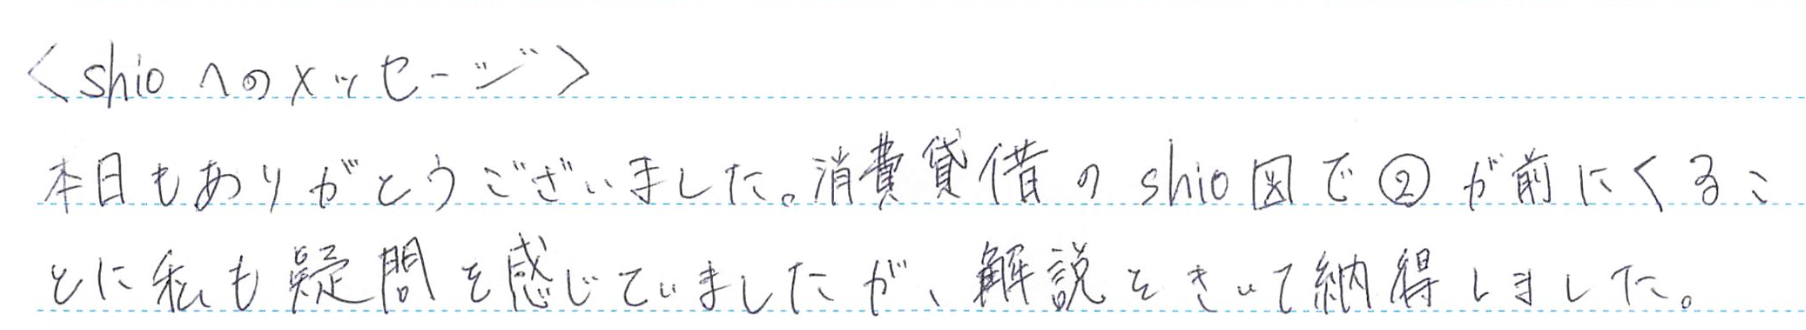 <shioへのメッセージ>
本日もありがとうございました。消費貸借のshio図で②が前にくるこ
とに私も疑問を感じていましたが、解説をきいて納得しました。